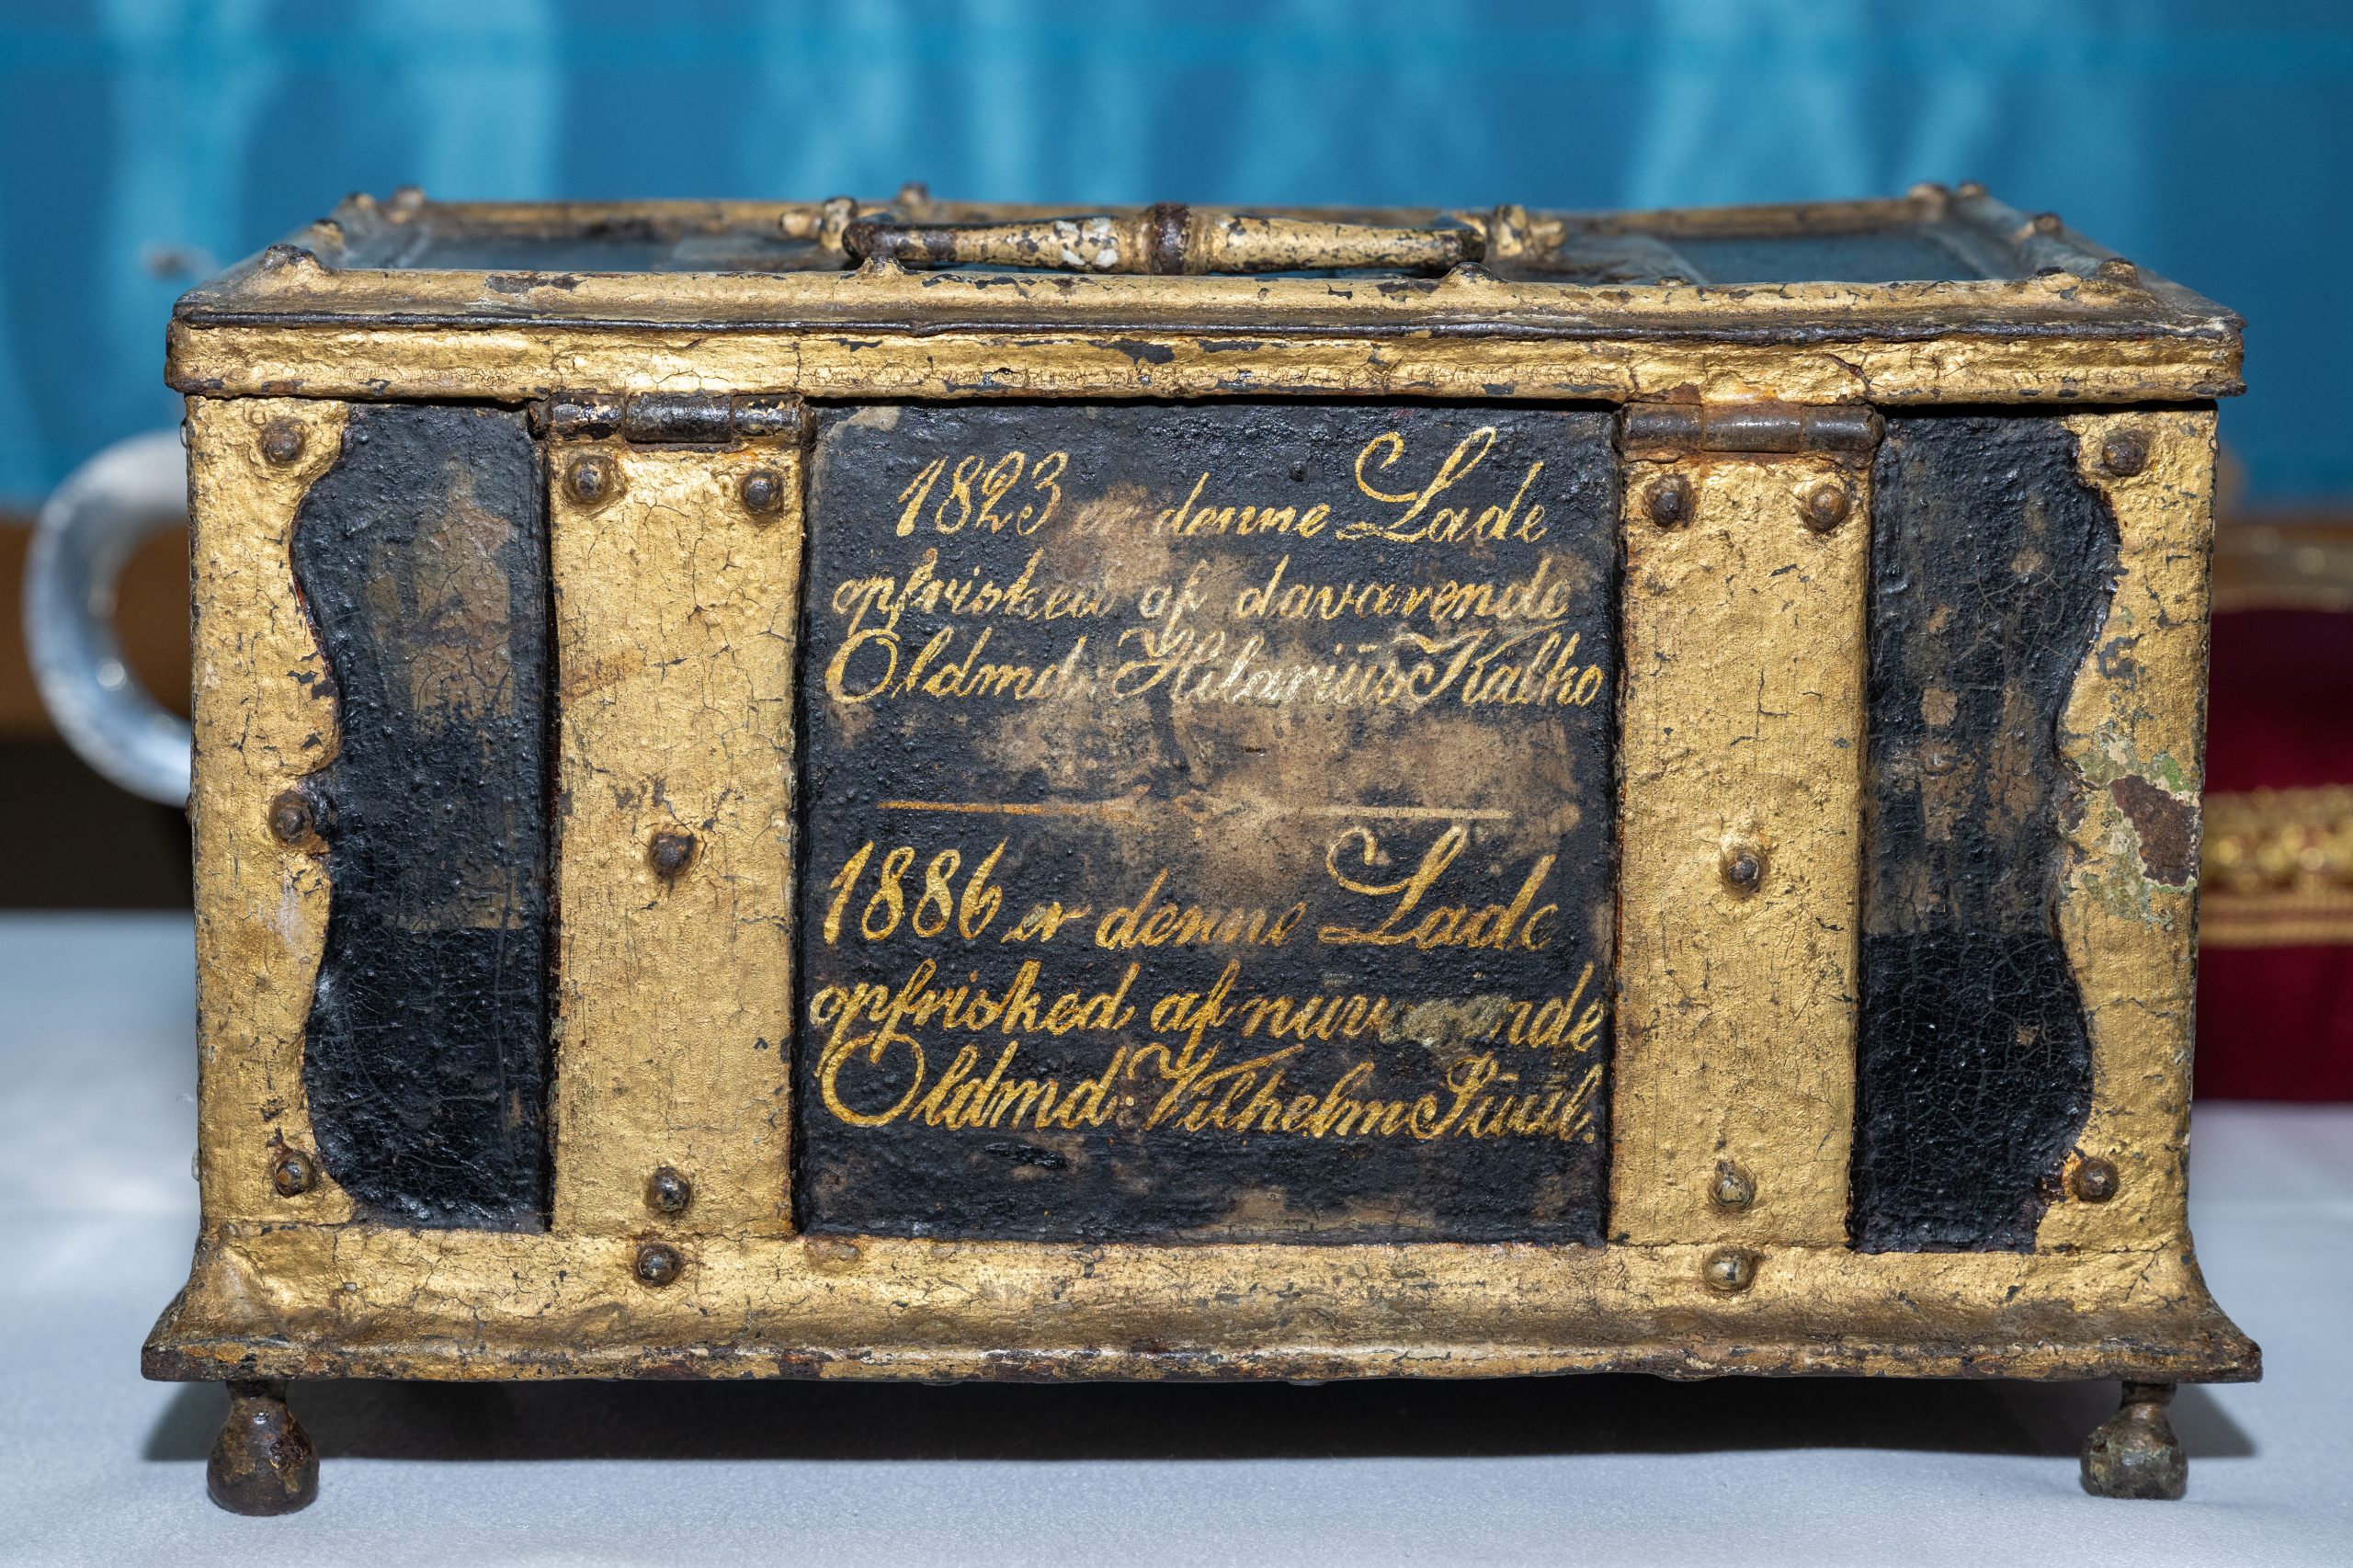 1823 er denne Lade
opfrisked af daværende
Oldmd: Hilariüs Kalko
1886 er denne Lade
opfrisked af nüværende
Oldmd: Vilhelm Jüül.